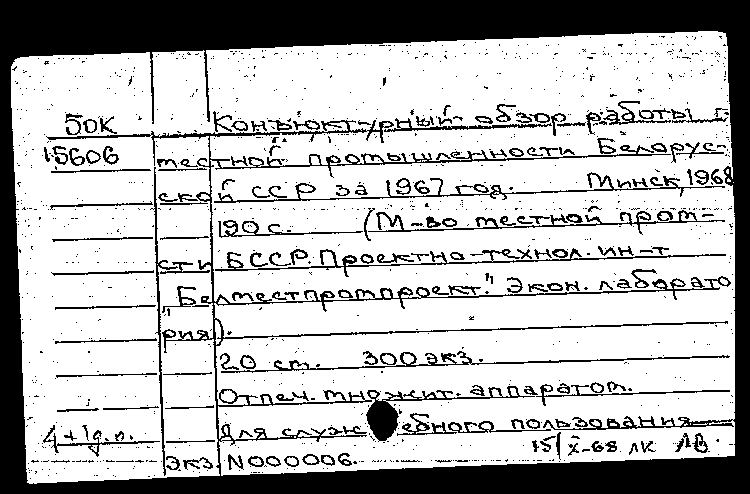 50К Конъюктурный обзор работы
15606 местной промышленности Белорус-
ской ССР за 1967 год. Минск, 1968
190 с. (М-во местной пром-
сти БССР. Проектно-технол. ин-т
"Белместпромпроект." Экон. лаборато
рия).
20 см. 300 экз.
Отпеч. множит. аппаратом.
4+1д.п. Для служебного пользования
15/X-68 ЛК
экз. N000006.